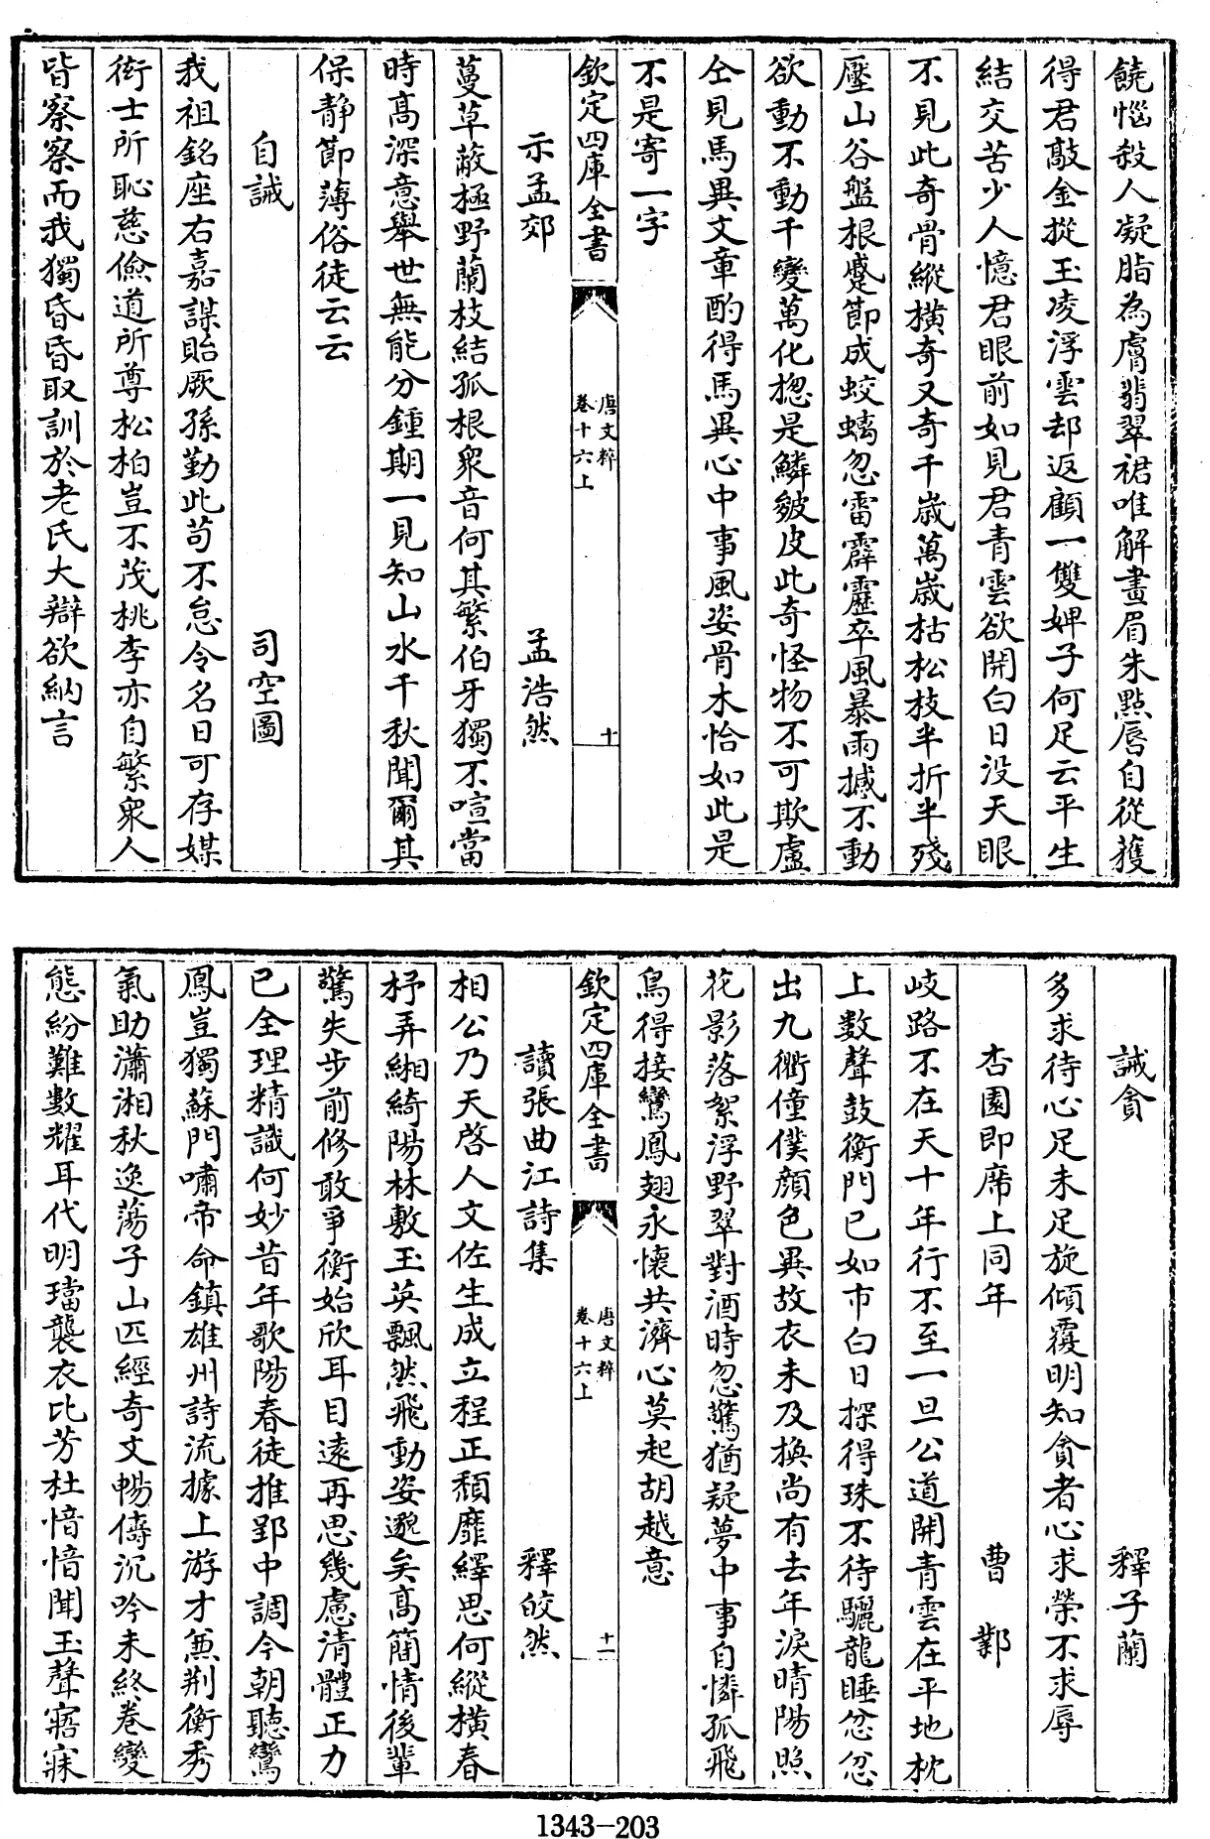 饒惱殺人凝脂為膚翡翠裙唯解畫眉朱點唇自從獲
得君敲金摐玉凌浮雲却返顧一雙婢子何足云平生
結交苦少人憶君眼前如見君青雲欲開白日没天眼
不見此奇骨縱横奇又奇千歳萬歳枯松枝半折半殘
壓山谷盤根蹙節成蛟螭忽雷霹靂卒風暴雨撼不動
欲動不動千變萬化揔是鱗皴皮此奇怪物不可欺盧
仝見馬異文章酌得馬異心中事風姿骨本恰如此是
不是寄一字
欽定四庫全書
唐文粹
卷十六上
十
示孟郊 孟浩然
蔓草蔽極野蘭枝結孤根衆音何其繁伯牙獨不喧當
時髙深意舉世無能分鍾期一見知山水千秋聞爾其
保静節薄俗徒云云
自誡 司空圖
我祖銘座右嘉謀貽厥孫勤此苟不怠令名日可存媒
衒士所恥慈儉道所尊松柏豈不茂桃李亦自繁衆人
皆察察而我獨昏昏取訓於老氏大辯欲納言
誡貪 釋子蘭
多求待心足未足旋傾覆明知貪者心求榮不求辱
杏園即席上同年 曹鄴
岐路不在天十年行不至一旦公道開青雲在平地枕
上數聲鼓衡門已如市白日探得珠不待驪龍睡怱怱
出九衢僮僕顔色異故衣未及換尚有去年淚晴陽照
花影落絮浮野翠對酒時忽驚猶疑夢中事自憐孤飛
鳥得接鸞鳳翅永懷共濟心莫起胡越意
欽定四庫全書
唐文粹
卷十六上
十一
讀張曲江詩集 釋皎然
相公乃天啓人文佐生成立程正頽靡繹思何縱横春
杼弄緗綺陽林敷玉英飄然飛動姿邈矣高簡情後輩
驚失步前修敢爭衡始欣耳目遠再思幾慮清體正力
已全理精識何妙昔年歌陽春徒推郢中調今朝聽鸞
鳳豈獨蘇門嘯帝命鎮雄州詩流據上游才兼荆衡秀
氣助瀟湘秋逸蕩子山匹經奇文暢儔沉吟未終卷變
態紛難數耀耳代明璫襲衣比芳杜愔愔聞玉聲寤寐
1343-203